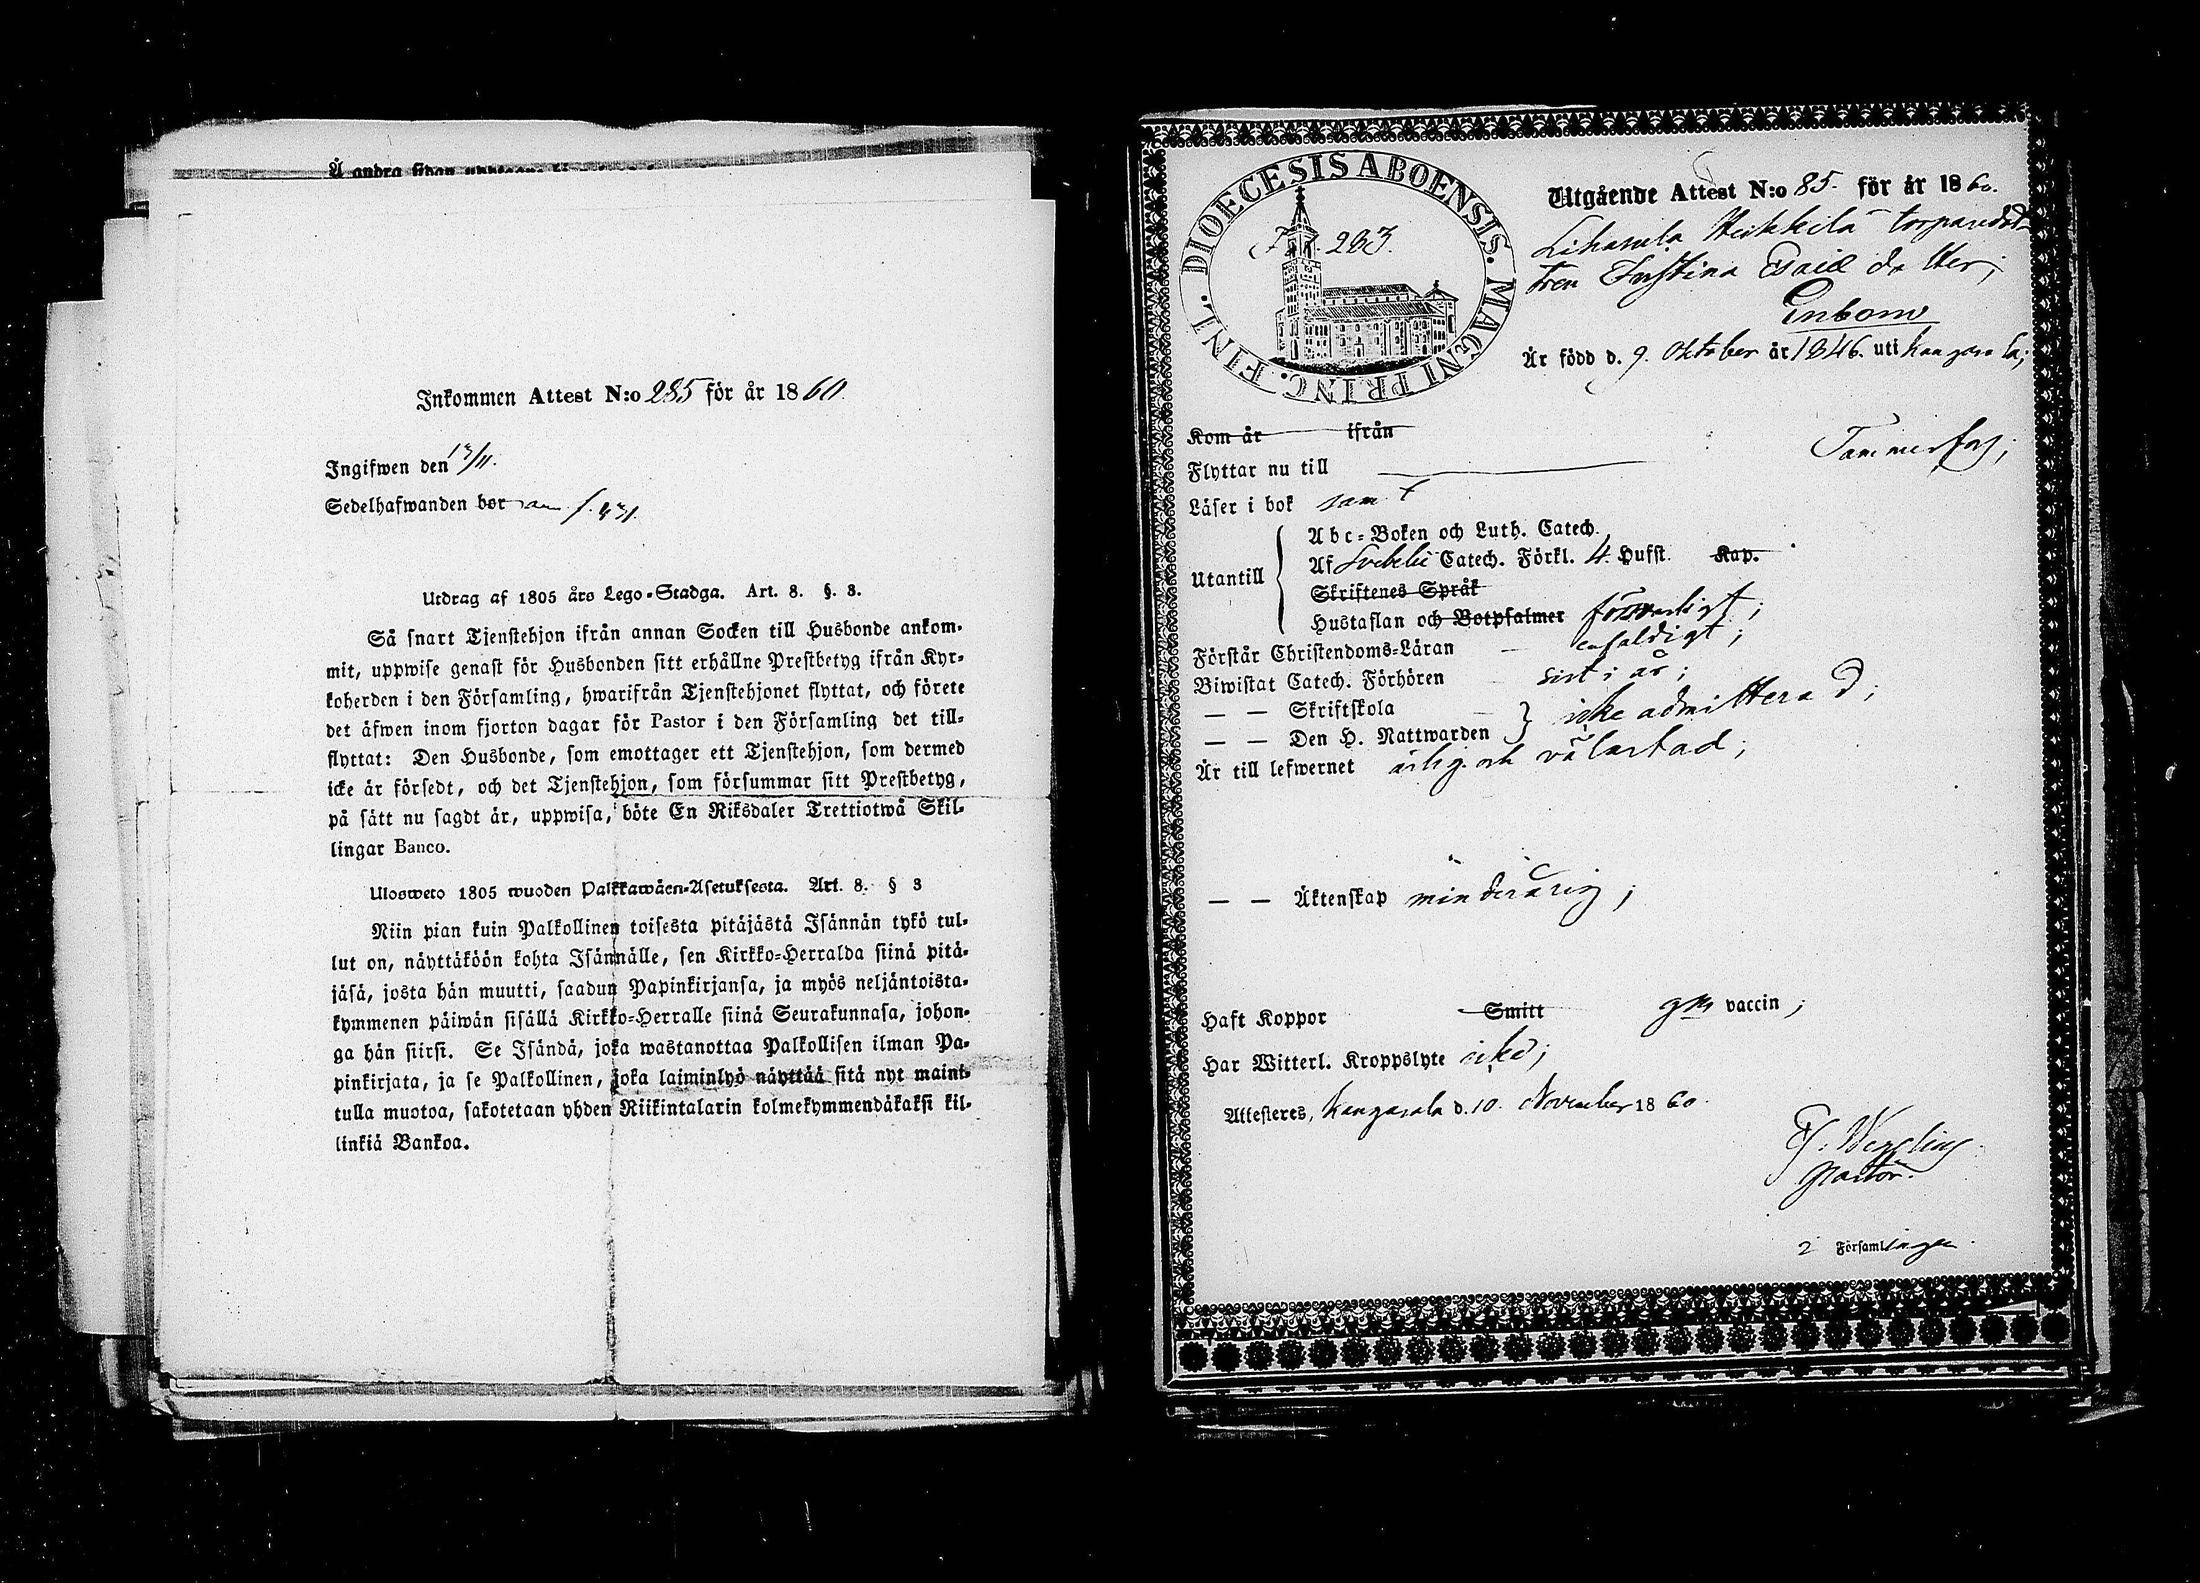 Å andra sidan
Inkommen Attest N:o 285 för år 1860.
Ingifwen den 13/11.
Sedelhafwanden bor f. 431.
Utdrag af 1805 års Lego-Stadga. Art. 8. §. 3.
Så snart Tjenstehjon ifrån annan Socken till Husbonde ankom-
mit, uppwise genast för Husbonden sitt erhållne Prestbetyg ifrån Kyr-
koherden i den Församling, hwarifrån Tjenstehjonet flyttat, och förete
det äfwen inom fjorton dagar för Pastor i den Församling det till-
flyttat: Den Husbonde, som emottager ett Tjenstehjon, som dermed
icke är försedt, och det Tjenstehjon, som försummar sitt Prestbetyg,
på sätt nu sagdt är, uppwisa, böte En Riksdaler Trettiotwå Skil-
lingar Banco.
Ulosweto 1805 wuoden Palkkawäen-Asetuksesta. Art. 8. § 3
Niin pian kuin Palkollinen toisesta pitäjästä Isännän tykö tul-
lut on, näyttäköön kohta Isännälle, sen Kirkko-Herralda siinä pitä-
jäsä, josta hän muutti, saadun Papinkirjansa, ja myös neljäntoista-
kymmenen päiwän sisällä Kirkko-Herralle siinä Seurakunnasa, johon-
ga hän siirsi. Se Isändä, joka wastanottaa Palkollisen ilman Pa-
pinkirjata, ja se Palkollinen, joka laiminlyö näyttää sitä nyt maini-
tulla muotoa, sakotetaan yhden Riikintalarin kolmekymmendäkaksi kil-
linkiä Bankoa.
DIOECESIS ABOENSIS. MAGNI PRINC. FINL.
283.
Utgående Attest N:o 85. för år 1860.
Lihasula Heikkilä torparedot-
tren Justina Esaiæ dotter;
Enbom
Är född d. 9. Oktober år 1846. uti Kangasala;
Kom år ifrån
Flyttar nu till Tammerfors;
Läser i bok samt
Utantill
Abc-Boken och Luth. Catech.
Af Svebelii Catech. Förkl. 4. Hufst. Kap.
Skriftenes Språk
Hustaflan och Botpsalmer försvarligt;
Förstår Christendoms-Läran enfaldigt;
Biwistat Catech. Förhören sist i år;
— — Skriftskola
— — Den H. Nattwarden } icke admitterad;
Är till lefwernet ärlig och välartad;
— — Äktenskap minderårig;
Haft Koppor Smitt gm vaccin;
Har Witterl. Kroppslyte icke;
Attesteres, Kangasala d. 10. November 1860.
Wegelius
Pastor.
2 Församlingen.